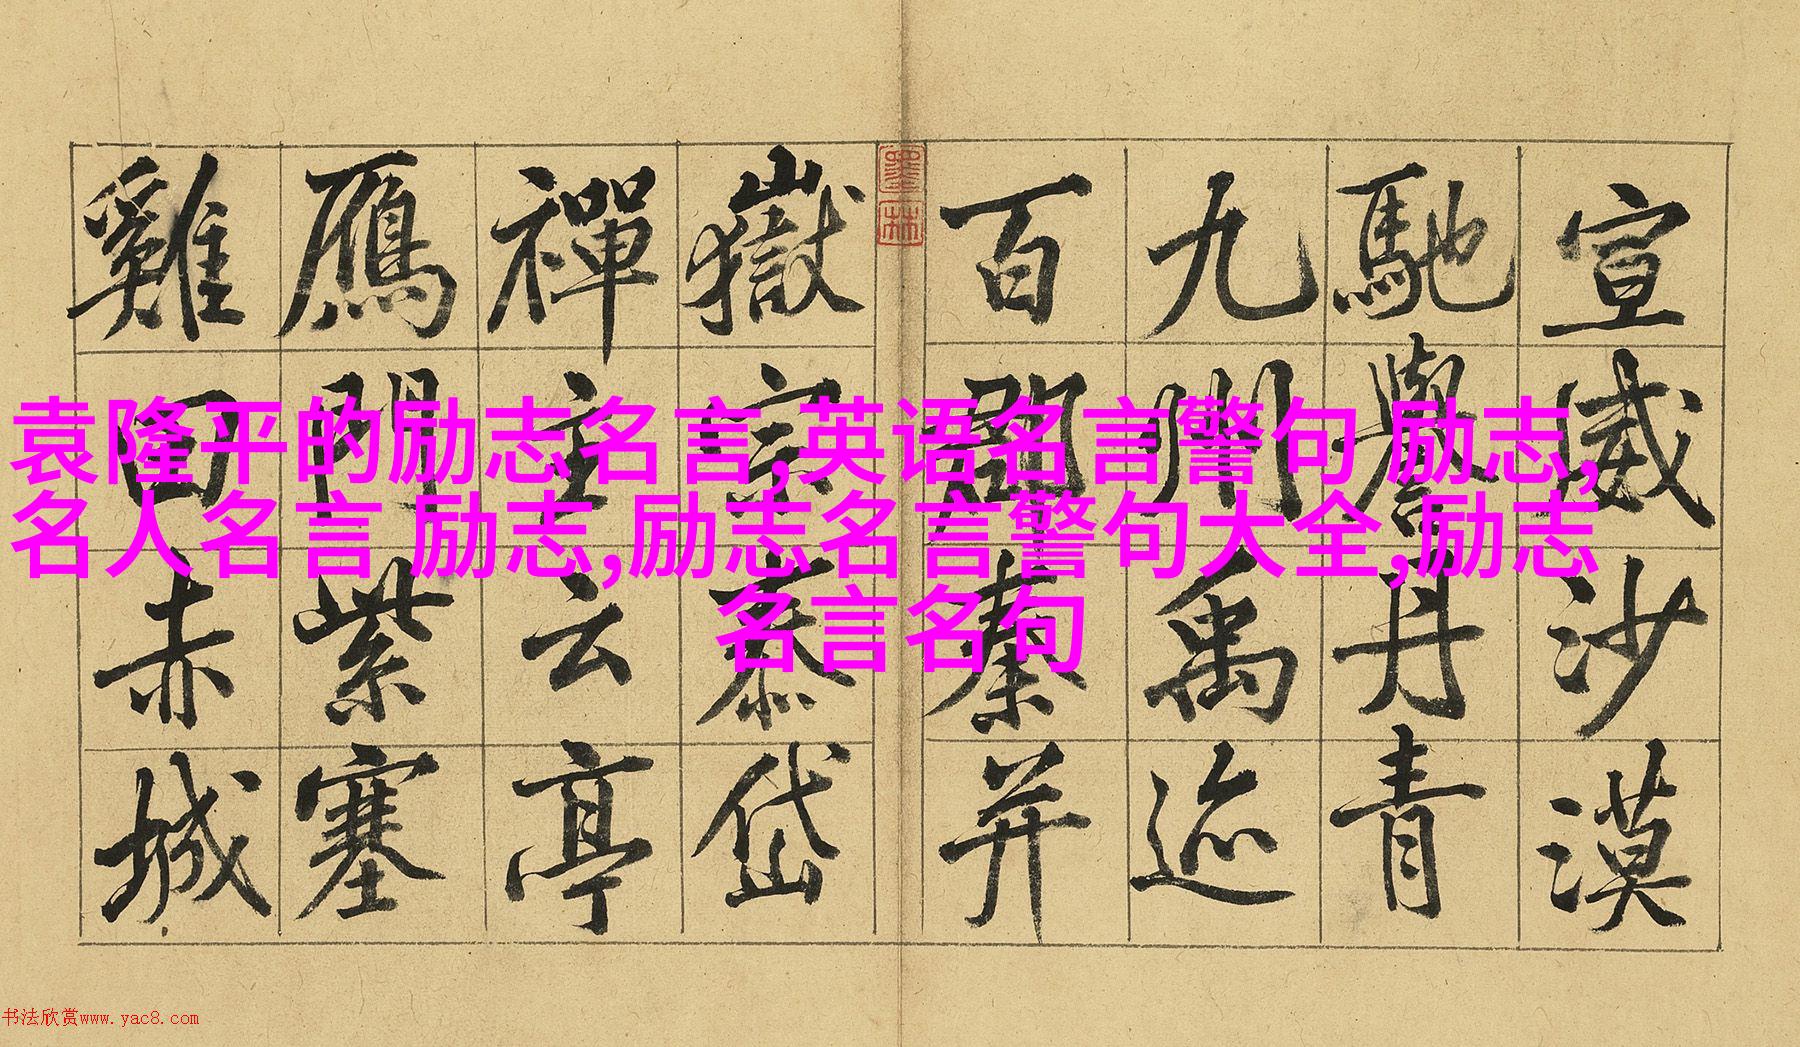 宣威沙漠
馳譽丹青
九州禹迹
百郡秦并
墨林
嶽宗泰岱
禪主云亭
鴈門紫塞
雞田赤城
袁隆平的励志名言,英语名言警句 励志,
名人名言 励志,励志名言警句大全,励志
名言名句
书法欣赏www.yac8.com